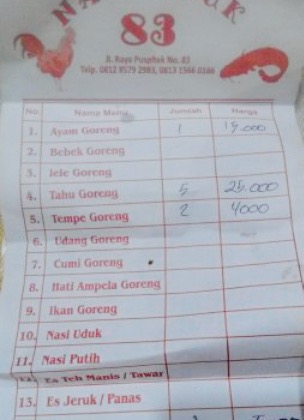 83
Jl. Raya Puspitek No. 83
Telp. 0812 8579 2983, 0813 1566 0166
No Nama Menu Jumlah Harga
1. Ayam Goreng 1 19.000
2. Bebek Goreng
3. lele Goreng
4. Tahu Goreng 5 25.000
5. Tempe Goreng 2 4000
6. Udang Goreng
7. Cumi Goreng
8. Hati Ampela Goreng
9. Ikan Goreng
10. Nasi Uduk
11. Nasi Putih
12. Es Teh Manis / Tawar
13. Es Jeruk / Panas